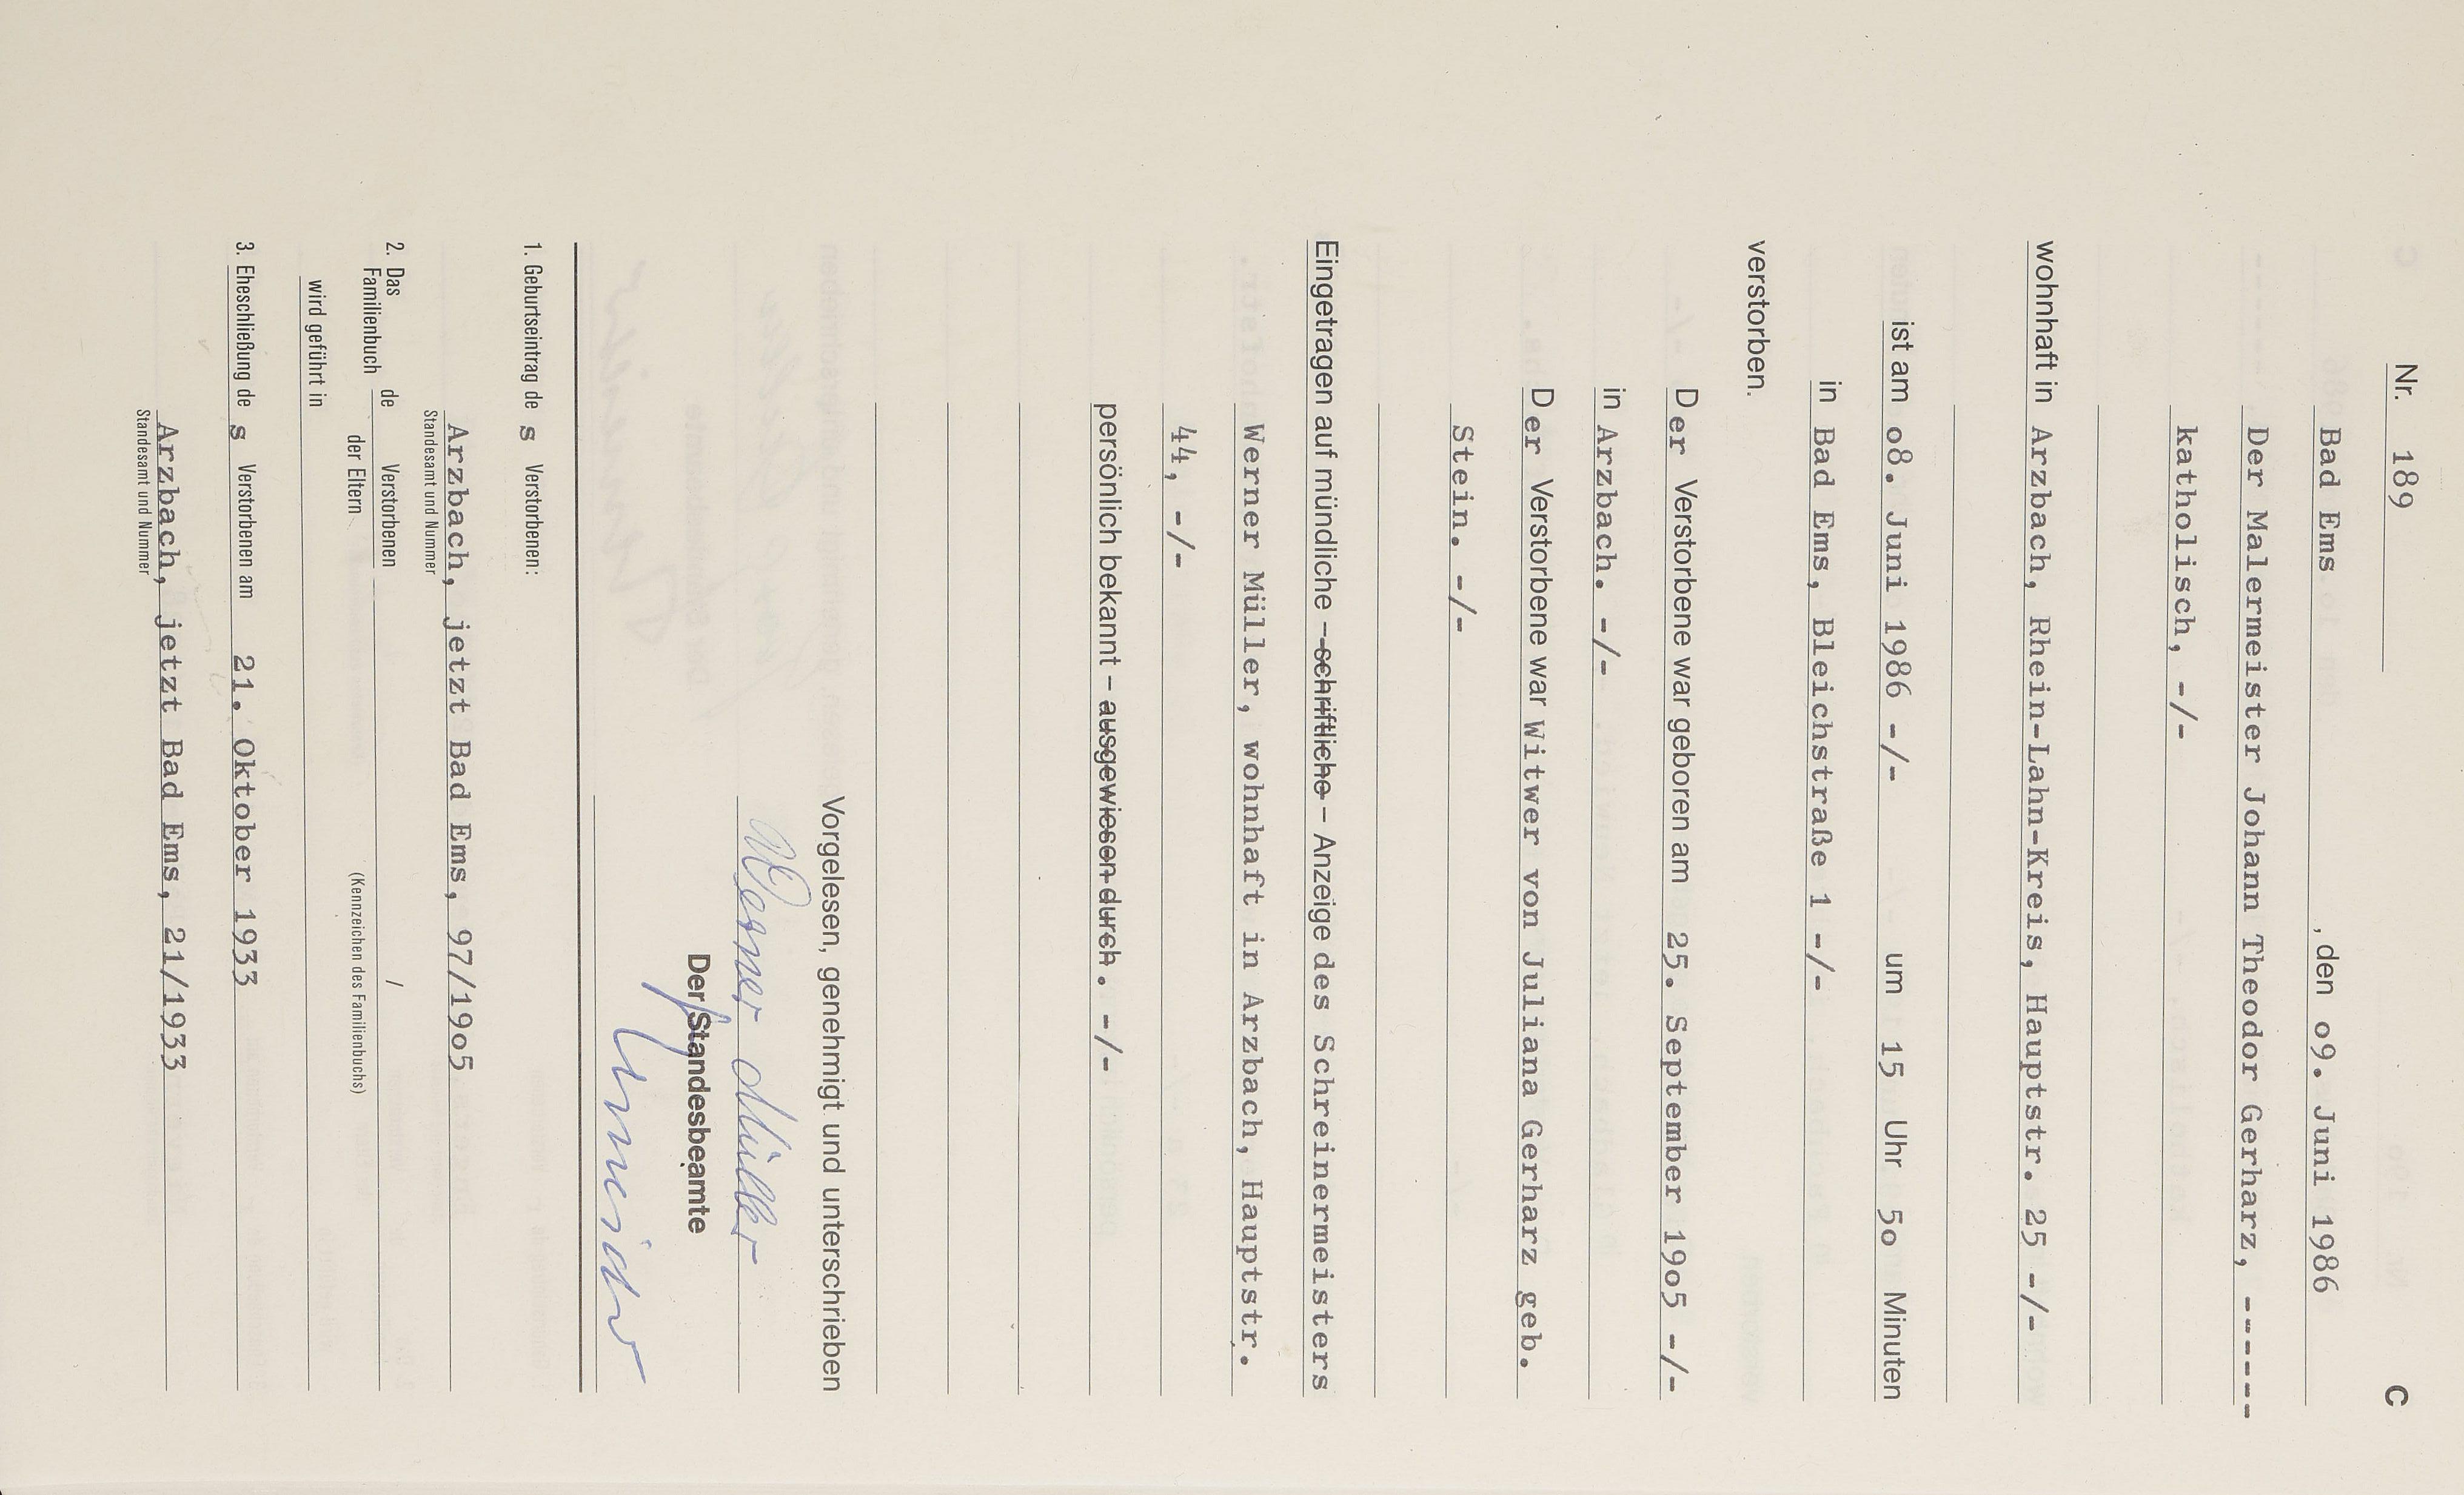 C
Nr. 189
Bad Ems , den o9. Juni 1986
Der Malermeister Johann Theodor Gerharz, ------
katholisch, -/-
wohnhaft in Arzbach, Rhein-Lahn-Kreis, Hauptstr. 25 -/-
ist am o8. Juni 1986 -/- um 15 Uhr 5o Minuten
in Bad Ems, Bleichstraße 1 -/-
verstorben.
Der Verstorbene war geboren am 25. September 19o5 -/-
in Arzbach. -/-
Der Verstorbene war Witwer von Juliana Gerharz geb.
Stein. -/-
Eingetragen auf mündliche – schriftliche – Anzeige des Schreinermeisters
Werner Müller, wohnhaft in Arzbach, Hauptstr.
44, -/-
persönlich bekannt – ausgewiesen durch. -/-
Vorgelesen, genehmigt und unterschrieben
Werner Müller
Der Standesbeamte
1. Geburtseintrag des Verstorbenen:
Arzbach, jetzt Bad Ems, 97/19o5
Standesamt und Nummer
2. Das Familienbuch de Verstorbenen /
der Eltern (Kennzeichen des Familienbuchs)
wird geführt in
3. Eheschließung des Verstorbenen am 21. Oktober 1933
Arzbach, jetzt Bad Ems, 21/1933
Standesamt und Nummer